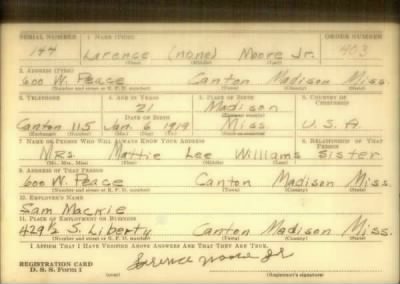 SERIAL NUMBER 1. NAME (Print) ORDER NUMBER
144 Larence (none) Moore Jr. 403
(First) (Middle) (Last)
2. ADDRESS (Print)
600 W. Peace Canton Madison Miss.
(Number and street or R. F. D. number) (Town) (County) (State)
3. TELEPHONE 4. AGE IN YEARS 5. PLACE OF BIRTH 6. COUNTRY OF CITIZENSHIP
21 Madison
DATE OF BIRTH
Canton 115 Jan. 6 1919 Miss. U.S.A.
(Exchange) (Number) (Mo.) (Day) (Yr.) (State or country)
7. NAME OF PERSON WHO WILL ALWAYS KNOW YOUR ADDRESS 8. RELATIONSHIP OF THAT PERSON
Mrs. Mattie Lee Williams Sister
(Mr., Mrs., Miss) (First) (Middle) (Last)
9. ADDRESS OF THAT PERSON
600 W. Peace Canton Madison Miss.
(Number and street or R. F. D. number) (Town) (County) (State)
10. EMPLOYER'S NAME
Sam Mackie
11. PLACE OF EMPLOYMENT OR BUSINESS
429½ S. Liberty Canton Madison Miss.
(Number and street or R. F. D. number) (Town) (County) (State)
I AFFIRM THAT I HAVE VERIFIED ABOVE ANSWERS AND THAT THEY ARE TRUE.
REGISTRATION CARD
D. S. S. Form 1 (over) Larence Moore Jr
(Registrant's signature)